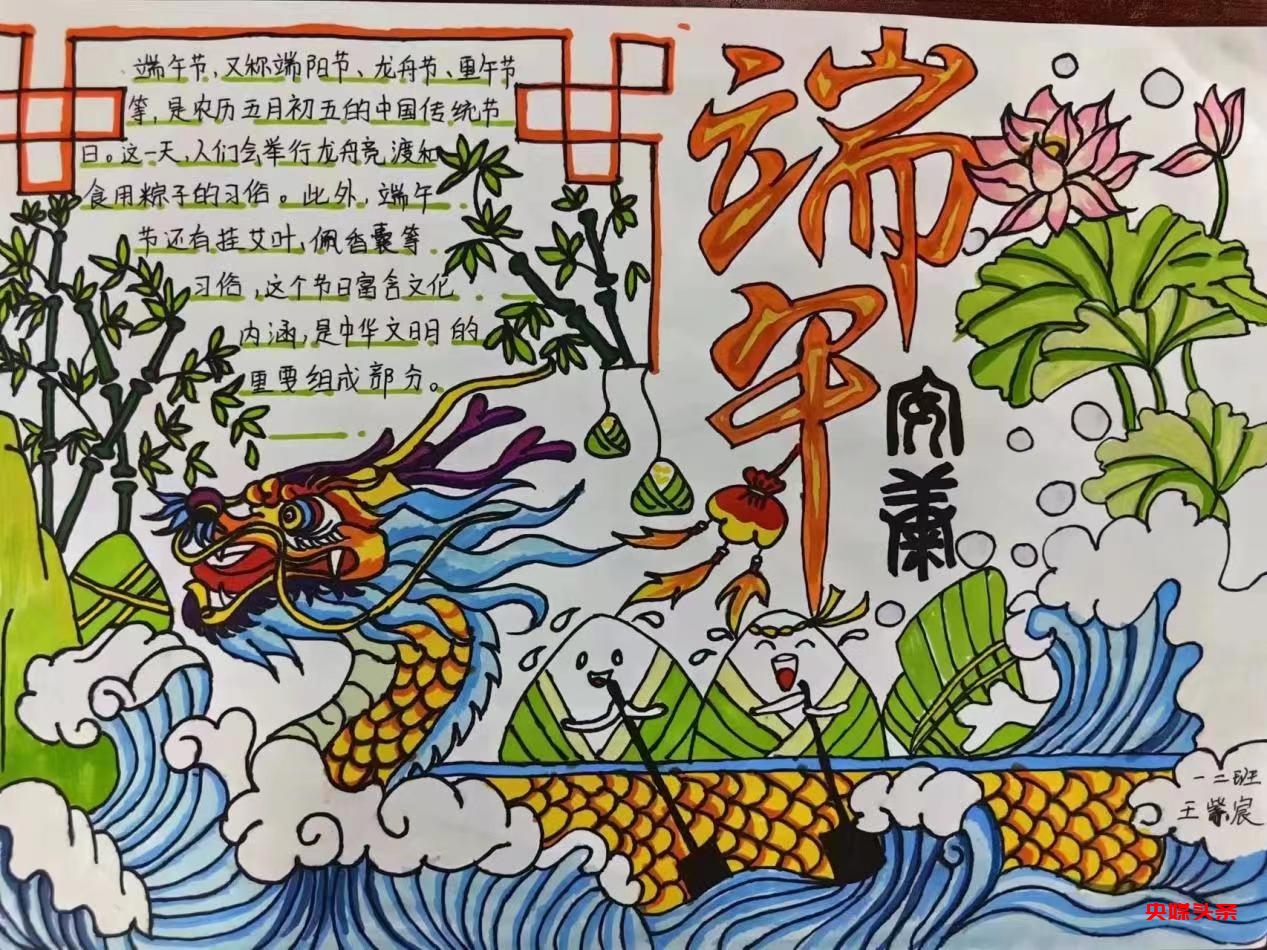 端午节,又称端阳节、龙舟节、重午节
等,是农历五月初五的中国传统节
日。这一天,人们会举行龙舟竞渡和
食用粽子的习俗。此外,端午
节还有挂艾叶,佩香囊等
习俗,这个节日富含文化
内涵,是中华文明的
重要组成部分。
端午
安康
一二班
王紫宸
央媒头条